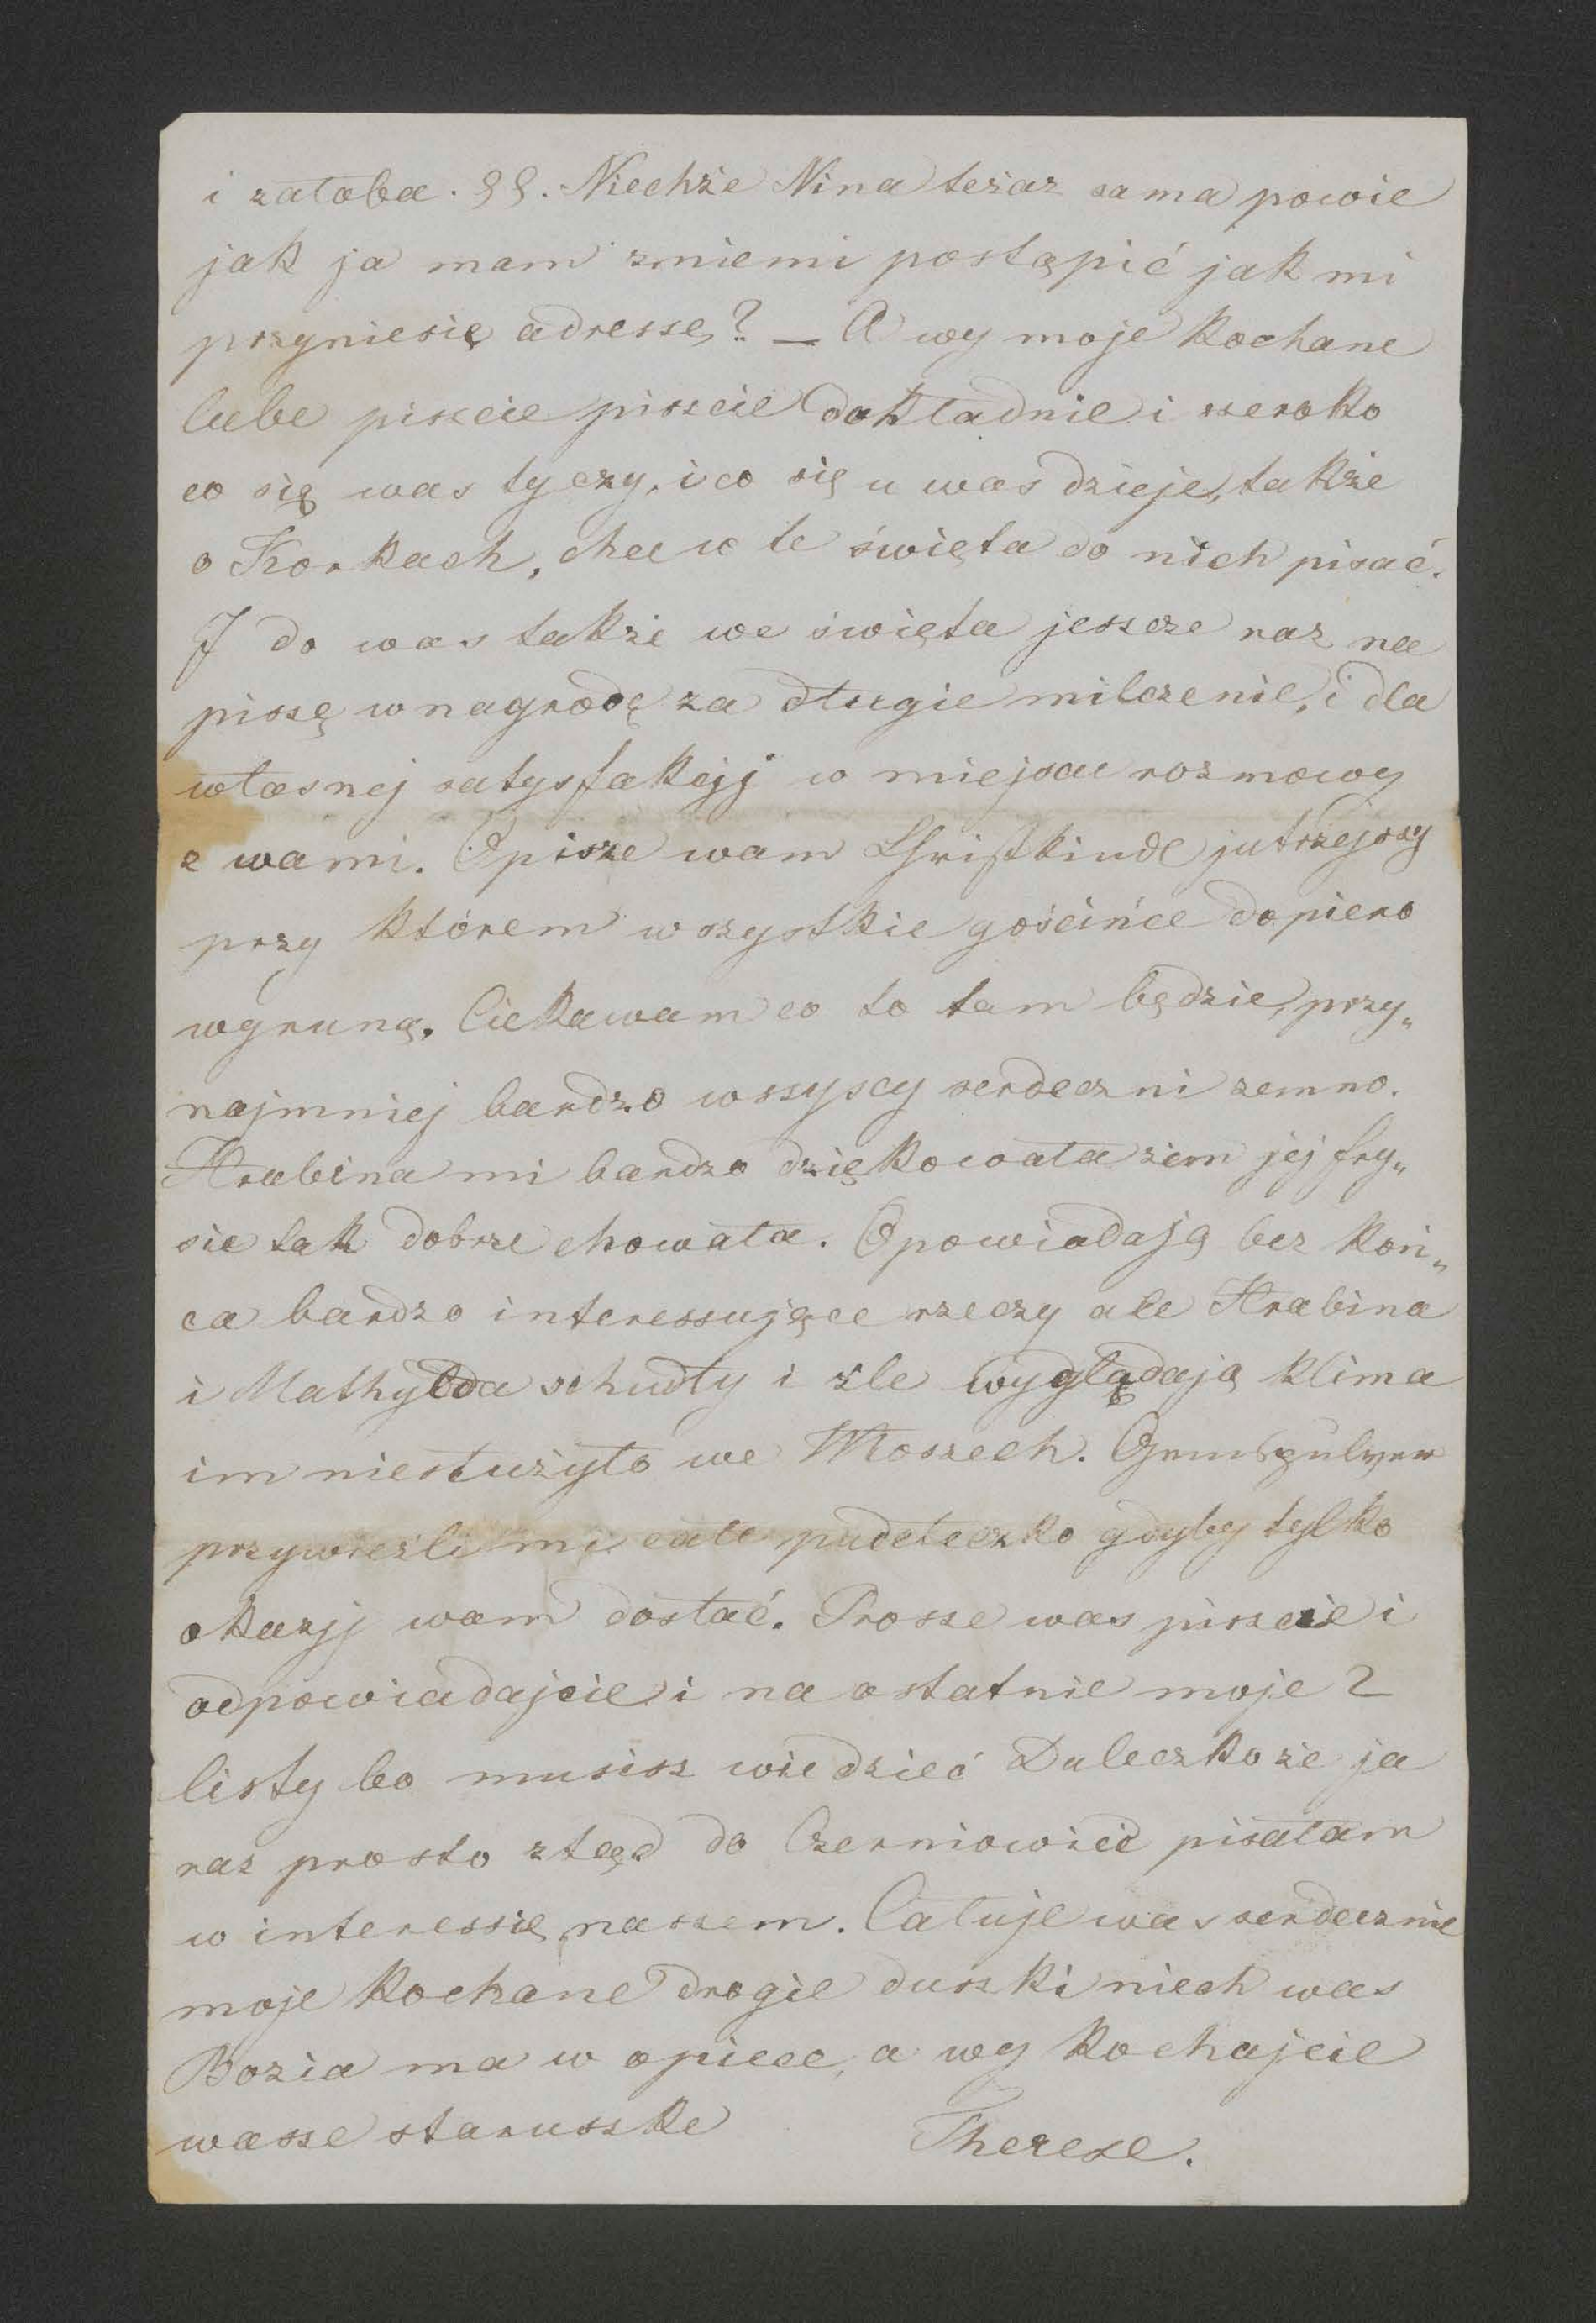 i załoba. §§. Niechże Nina teżaz sama powie
jak ja mam zniemi postąpić jak mi
przyniesię adressę? — A wy moje kochane
lube piszcie piszcie dokładnie i szeroko
co się was tyczy, i co się u was dzieje, także
o Korkach, chce w te święta do nich pisać.
I do was także we święta jeszcze raz na
piszę w nagrodę za długie milczenie, i dla
własnej satysfakcjj w miejscu rozmowy
z wami. Opisze wam Christkindl jutrzejszy
przy którem wszystkie gościńce dopiero
wyruną. Ciekawam co to tam będzie, przy„
najmniej bardzo wszyscy serdeczni zemno.
Hrabina mi bardzo dziękowała żem jej fry„
sie tak dobrze chowała. Opowiadają bez koń„
ca bardzo interessujące rzeczy ale Hrabina
i Mathylda schudły i zle wyglądają klima
im niesłużyło we Włoszech.
przywieźli mi całe pudełeczko gdyby tylko
okazjj wam dostać. Prosze was piszcie i
odpowiadajcie i na ostatnie moje 2
listy bo musisz wiedzieć Duleczko że ja
raz prosto ztąd do Czerniowiec pisałam
w interessie naszem. Całuje was serdecznie
moje kochane drogie duszki niech was
Bozia ma w opiece, a wy kochajcie
wasze staruszke Therese.